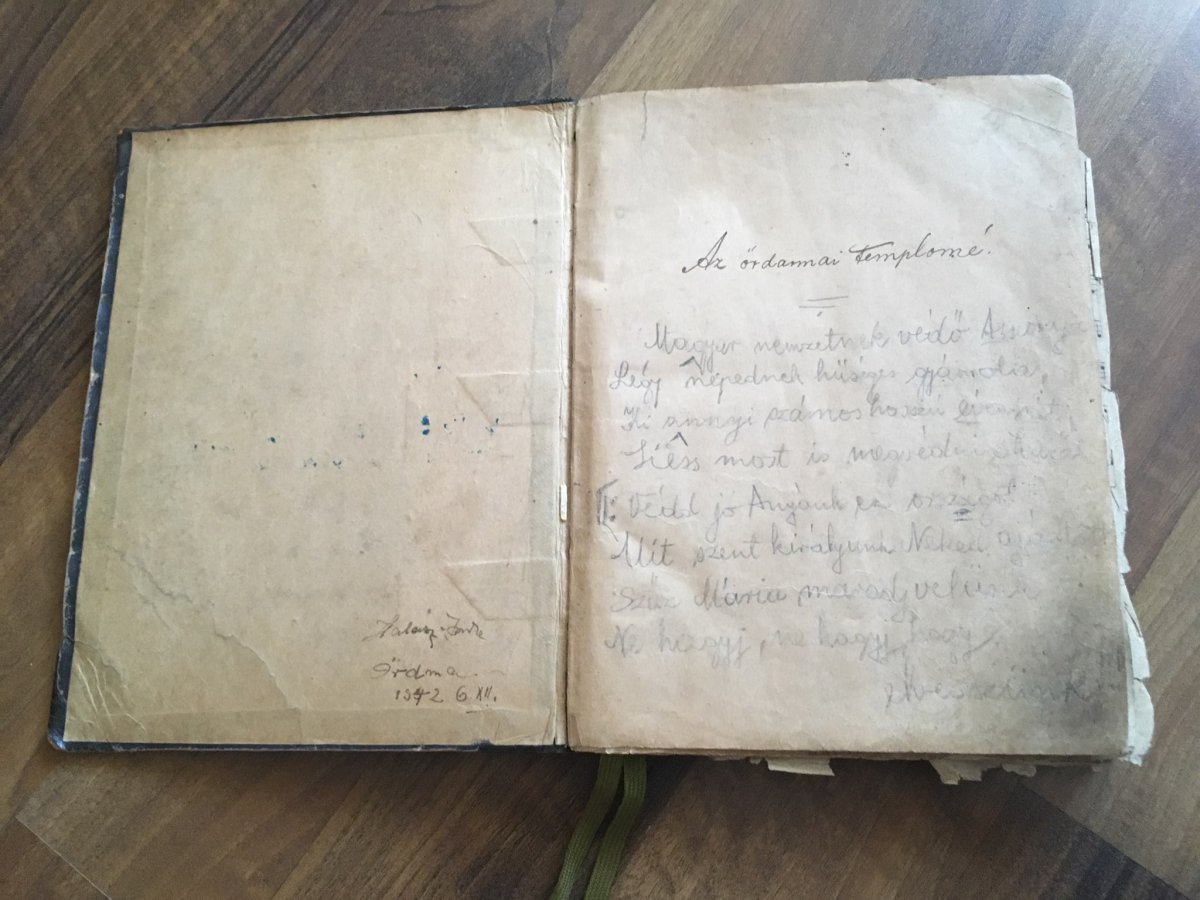 Halász Imre
Őrdarma
1942 6. XII.
Az őrdarmai templomé.
Magyar nemzetnek védő Asszonya
Légy népednek hűséges gyámola,
Ki annyi számos hosszú
most is
Védd jó Anyánk ez országot
Mit szent királyunk Neked
Szűz Mária maradj velünk
Ne hagyj, ne hagyj, hogy
elvesszünk